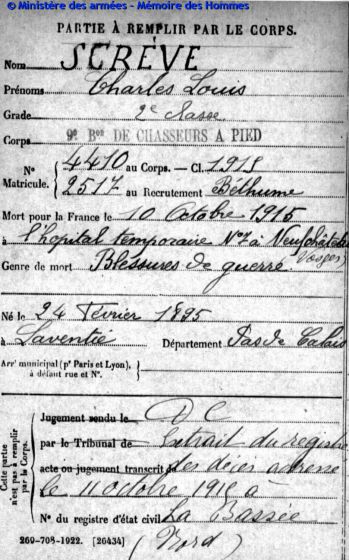 © Ministère des armées - Mémoire des Hommes
PARTIE À REMPLIR PAR LE CORPS.
Nom SCRÈVE
Prénoms Charles Louis
Grade 2e classe
Corps 9e Bon DE CHASSEURS A PIED
N° 4410 au Corps. — Cl. 1915
Matricule. 2517 au Recrutement Béthume
Mort pour la France le 10 Octobre 1915
à l'hopital temporaire N°7 à Neufchâteau
Vosges
Genre de mort Bléssures de guerre
Né le 24 Février 1895
à Laventie Département Pas de Calais
Arrt municipal (pr Paris et Lyon),
à défaut rue et N°.
Cette partie n'est pas à remplir par le Corps.
Jugement rendu le D C
par le Tribunal de Extrait du registre
acte ou jugement transcrit des décès adressé
le 11 octobre 1915 à
N° du registre d'état civil La Bassée
(Nord)
269-708-1922. [26434]